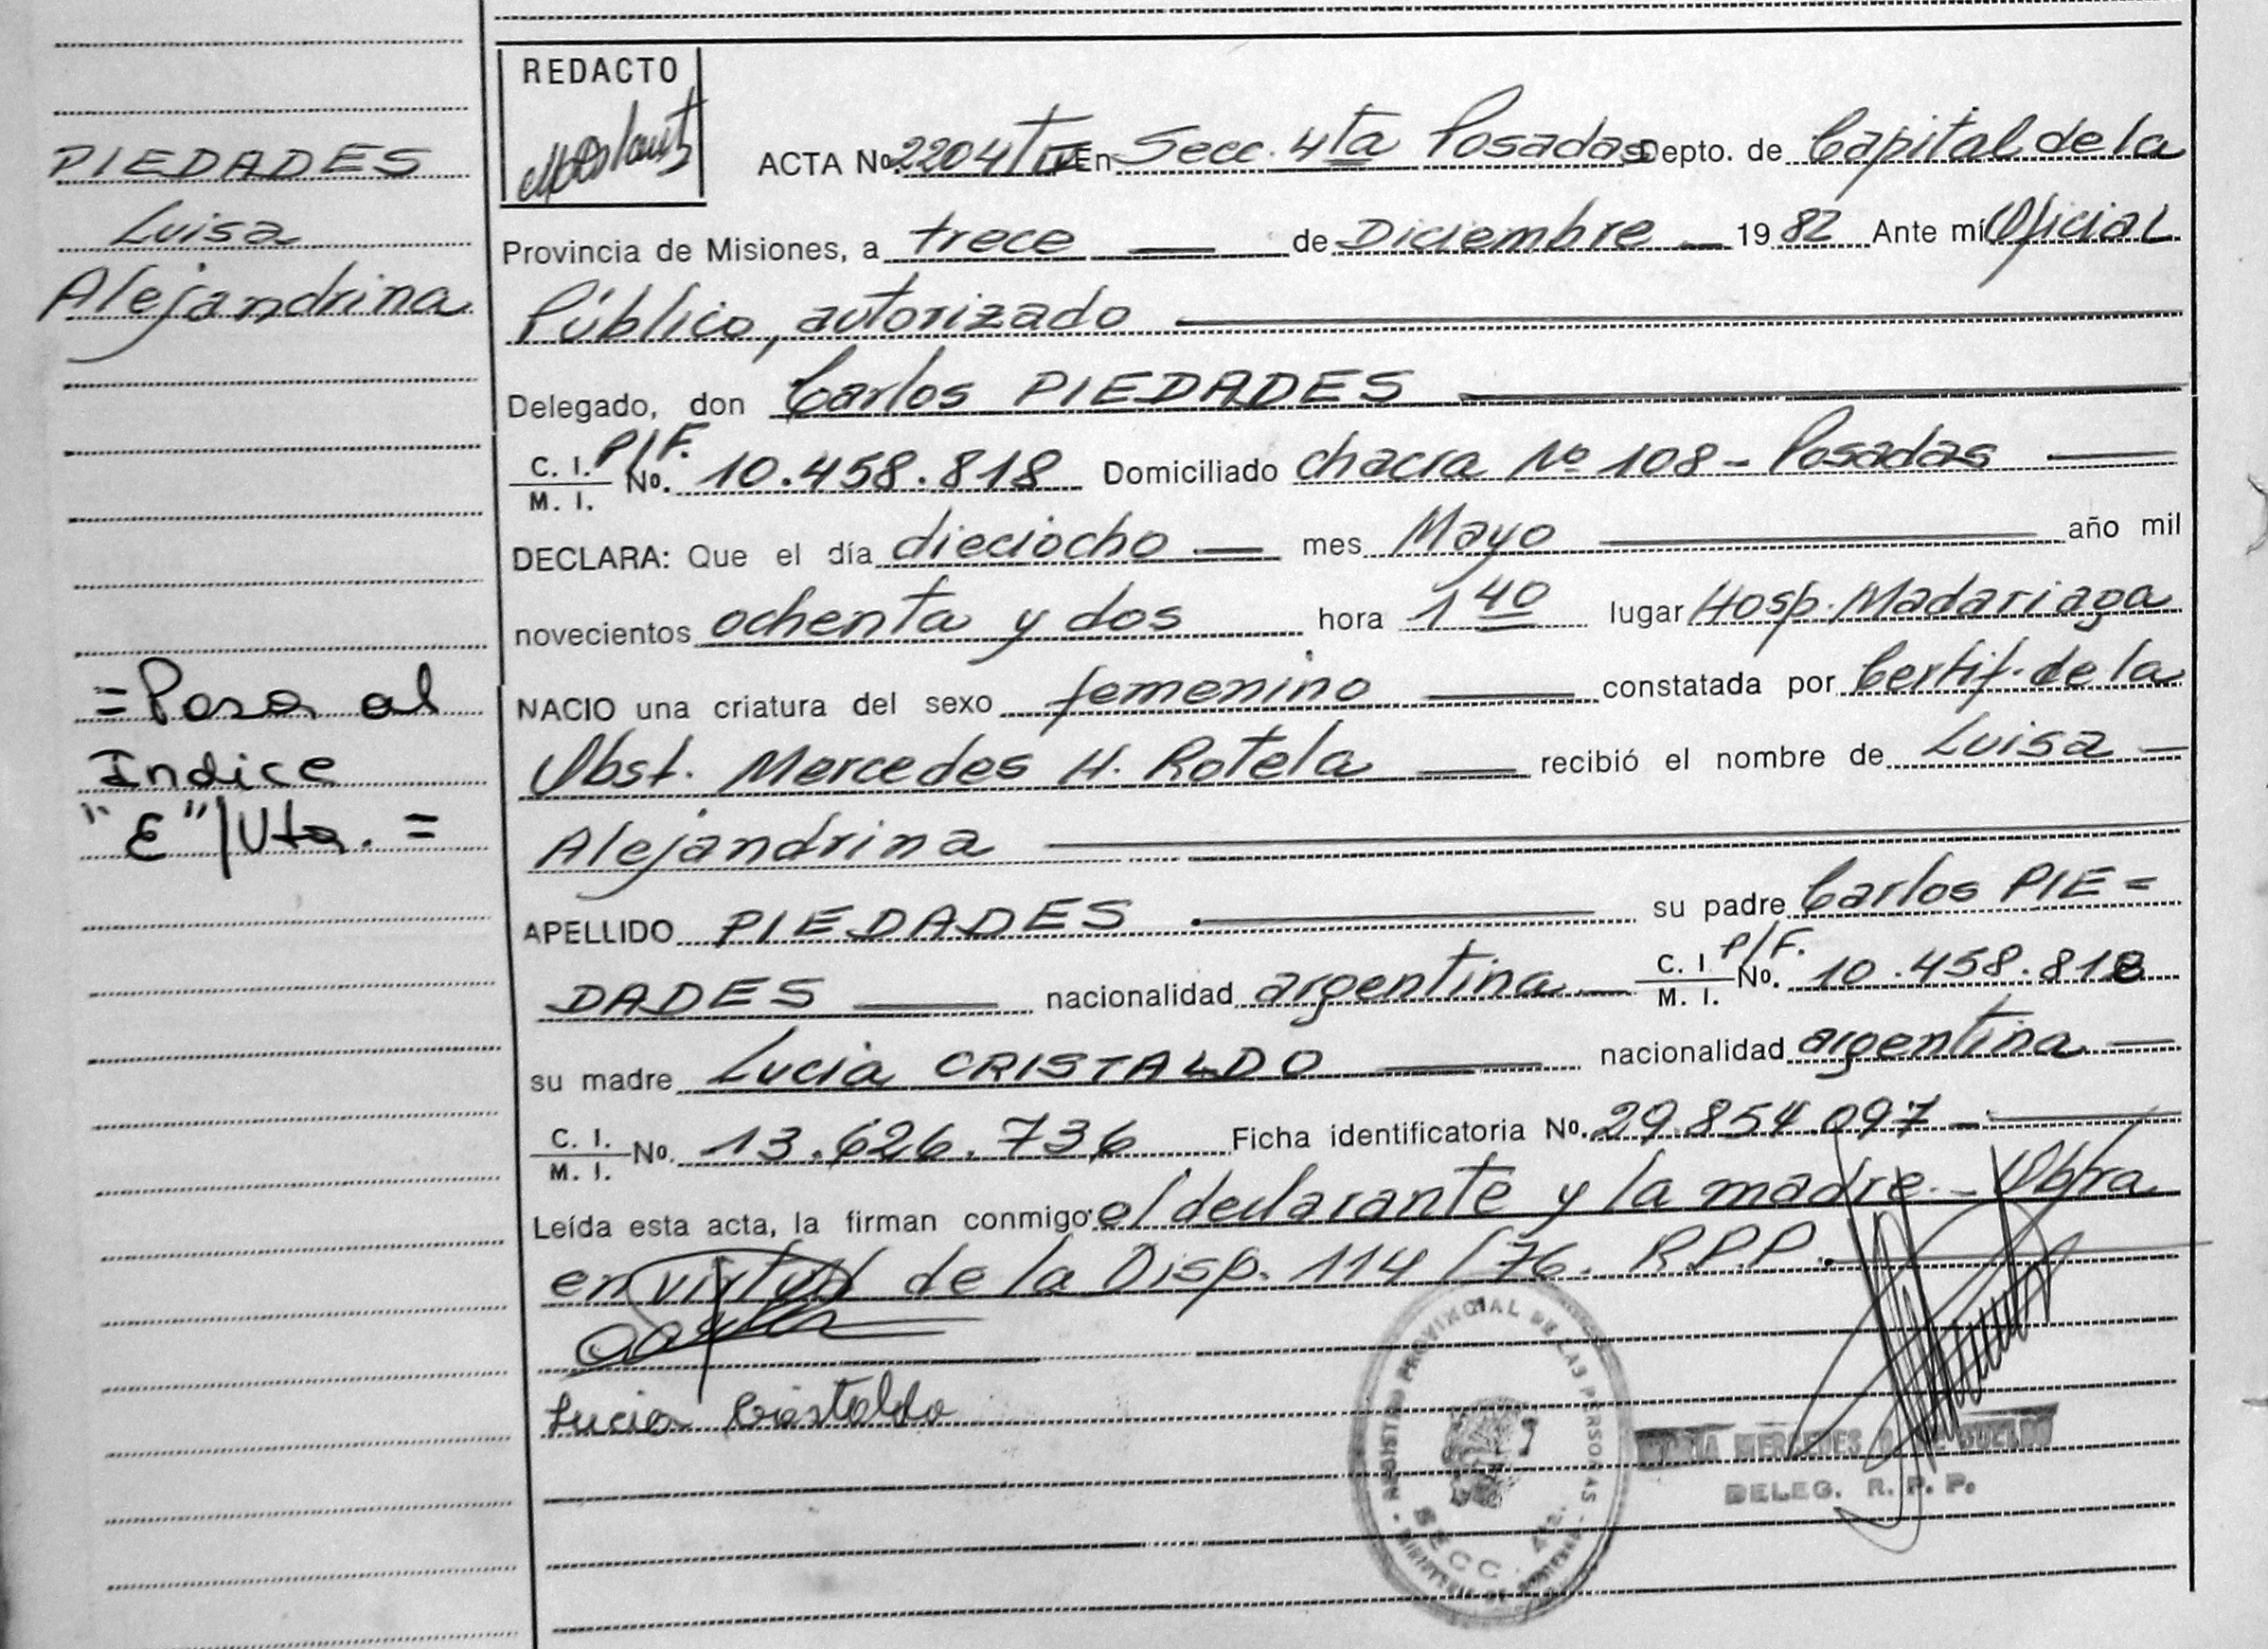 PIEDADES
Luisa
Alejandrina
=Pasa al
Indice
"E"/Vta. =
REDACTO
ACTA No. 2204/TIV En Secc. 4ta Posadas Depto. de Capital de la
Provincia de Misiones, a trece de Diciembre 1982 Ante mí Oficial
Público, autorizado
Delegado, don Carlos PIEDADES
C. I. P/F.
M. I. No. 10.458.818 Domiciliado chacra Nº 108 - Posadas
DECLARA: Que el día dieciocho mes Mayo año mil
novecientos ochenta y dos hora 1 40 lugar Hosp. Madariaga
NACIO una criatura del sexo femenino constatada por Certif. de la
Obst. Mercedes H. Rotela recibió el nombre de Luisa
Alejandrina
APELLIDO PIEDADES su padre Carlos PIE=
DADES nacionalidad argentina C. I. P/F. M. I. No. 10.458.818
su madre Lucia CRISTALDO nacionalidad argentina
C. I. M. I. No. 13.626.736 Ficha identificatoria No. 29.854.097 -
Leída esta acta, la firman conmigo el declarante y la madre. - Obra
en virtud de la Disp. 114/76. R.P.P.
Lucia Cristaldo
REGISTRO PROVINCIAL DE LAS PERSONAS
SECC. 4ta.
MARIA MERCEDES
DELEG. R. P. P.